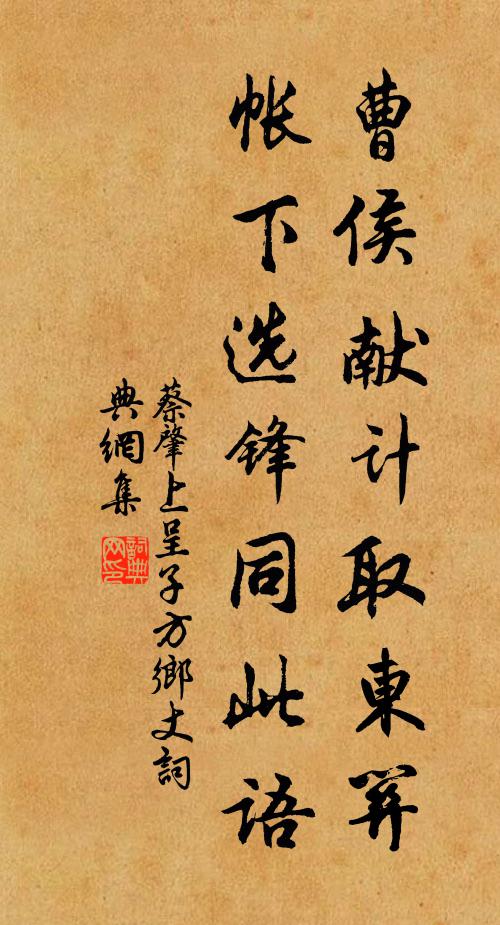 曹侯献计取東
帐下选锋同此语
蔡肇上呈子方鄉丈詞
典網集
詞典
网印